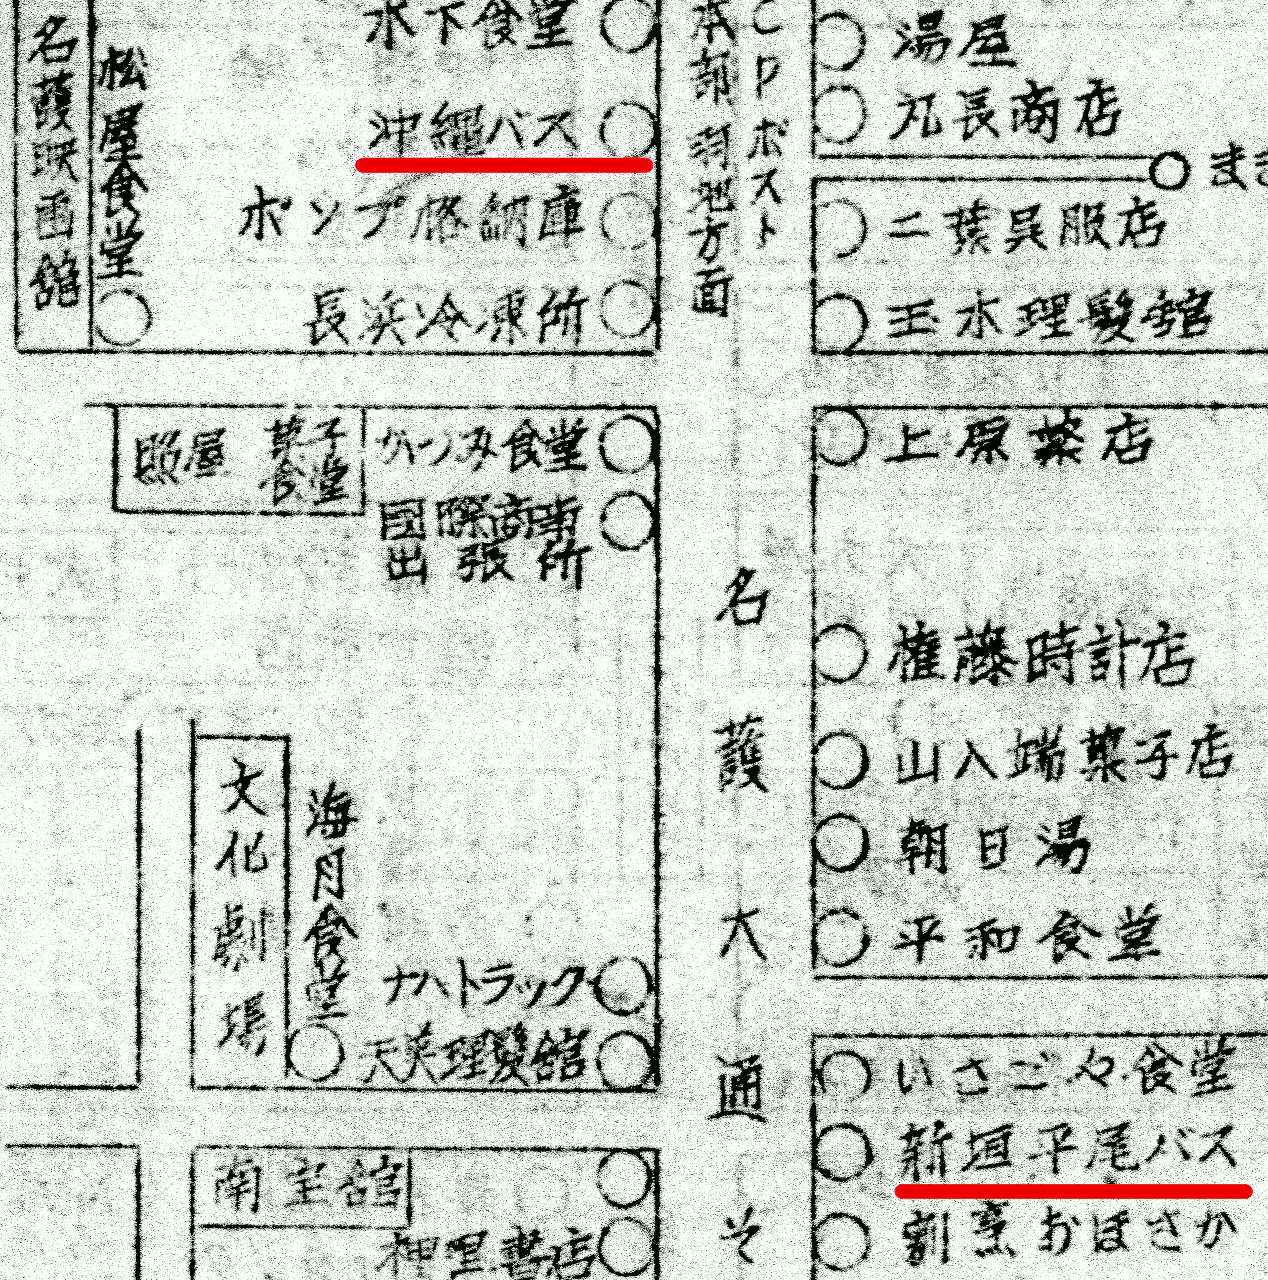 名護映画館
松屋食堂
水下食堂
沖縄バス
ポンプ格納庫
長浜冷凍所
CPポスト
本部羽地方面
湯屋
丸長商店
二葉呉服店
玉水理髪館
照屋菓子食堂
かつみ食堂
國際商事
出張所
文化劇場
海月食堂
ナハトラック
天美理髪舘
南宝舘
神里書店
名護大通そ
上原薬店
権藤時計店
山入端菓子店
朝日湯
平和食堂
いさご々食堂
新垣平尾バス
割烹おぼさか